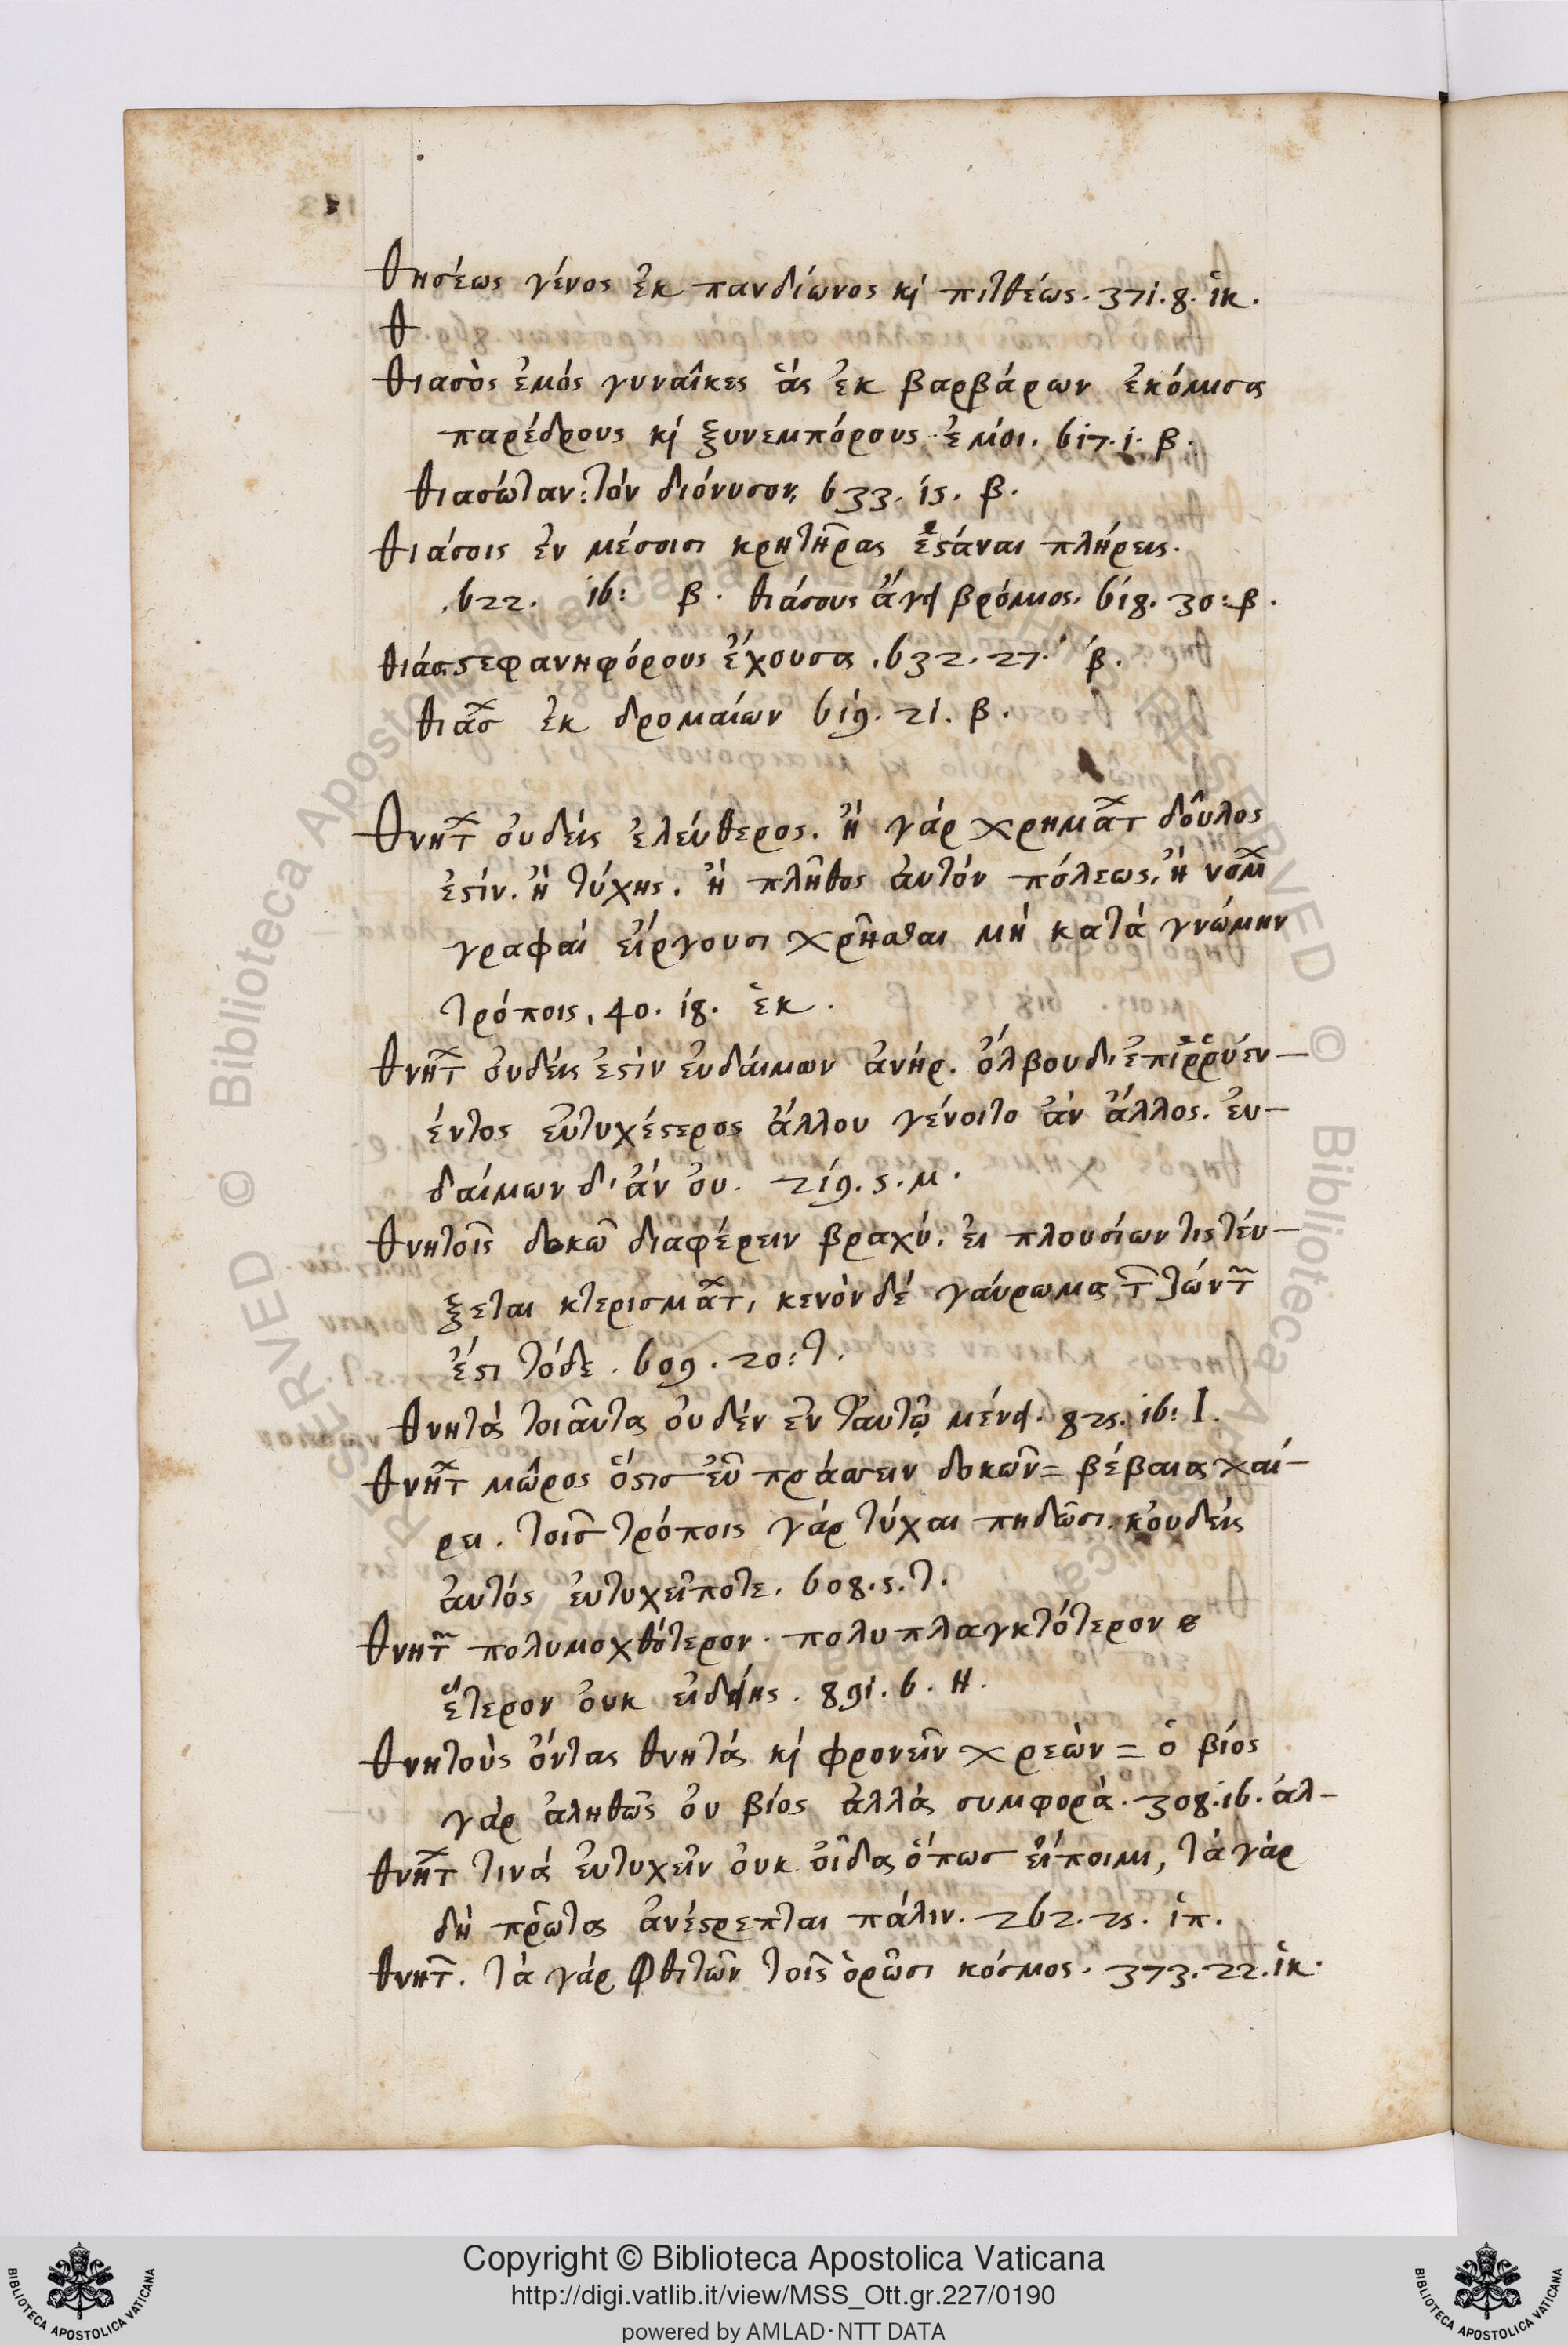 θησέως γένος ἐκ πανδίωνος κὶ πιτθέως. 371. 8. ἱκ.
θ
θιασὸς ἐμός γυναῖκες ἃς ἐκ βαρβάρων ἐκόμισα
παρέδρους κὶ ξυνεμπόρους ἐμόι. 617. 1. β.
θιασώταν: τὸν διόνυσον, 633. 15. β.
θιάσοις ἐν μέσοισι κρητῆρας ἑϛάναι πλήρεις.
622. 16: β. θιάσους ἄγει βρόμιος. 618. 30: β.
θιάσ ϛεφανηφόρους ἔχουσα. 632. 27. β.
θιάσ ἐκ δρομαίων 619. 21. β.
θνητ οὐδείς ἐλεύθερος. ἢ γάρ χρηματ δοῦλος
ἐϛίν. ἢ τύχης. ἢ πλῆθος ἀυτόν πόλεως, ἢ νομ
γραφαί εἴργουσι χρῆσθαι μὴ κατά γνώμην
τρόποις, 40. 18. ἑκ.
θνητ οὐδείς ἐϛίν ἐυδάιμων ἀνήρ. ὄλβου δ' ἐπιῤῥύέν-
έντος εὐτυχέϛερος ἄλλου γένοιτο ἂν ἄλλος. ἐυ-
δαίμων δ' ἂν ὀυ. 219. 5. μ.
θνητοῖς δοκῶ διαφέρειν βραχύ. ἐι πλουσίων τις τέυ-
ξεται κτερισματ, κενὸν δέ γάυρωμα τ ζώντ
ἐϛι τόδε. 609. 20: τ.
θνητὰ τοιαῦτα οὐδέν ἐν τἀυτῷ μένει. 825. 16: Ι.
θνητ μῶρος ὅϛισ ἐῦ πράσσειν δοκῶν = βέβαια χαί-
ρει. τοις τρόποις γάρ τύχαι πηδῶσι. κοὐδείς
ἀυτός ἐυτυχεῖ ποτε. 608. 5. τ.
θνητ πολυμοχθότερον. πολυπλαγκτότερον
ἕτερον ὀυκ εἰδης. 891. 6. Η.
θνητοὺς ὄντας θνητά κὶ φρονεῖν χρεὼν = ὁ βίος
γάρ ἀληθῶς ὀυ βίος ἀλλά συμφορὰ. 308. 16. ἀλ-
θνητ τινά ἐυτυχεῖν ὀυκ οἶδα ὅπωσ εἴποιμι, τὰ γάρ
δὴ πρῶτα ἀνέϛρεπται πάλιν. 262. 25. ἱπ.
θνητ. τὰ γάρ φθιτῶν τοῖς ὁρῶσι κόσμος. 373. 22. ἱκ.
Copyright © Biblioteca Apostolica Vaticana
http://digi.vatlib.it/view/MSS_Ott.gr.227/0190
powered by AMLAD·NTT DATA